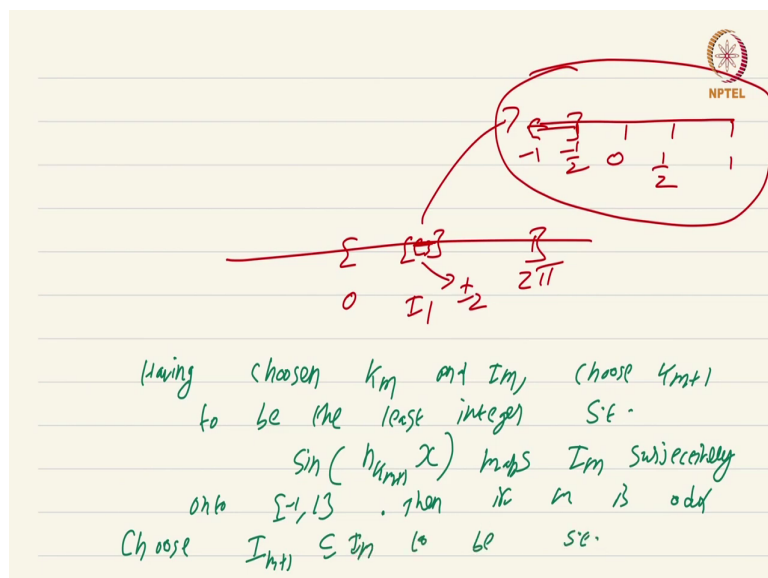 NPTEL
-1 -1/2 0 1/2 1
0 I1 I2 2π
Having choosen Km and Im, choose Km+1
to be the least integer s.t.
sin( nKm+1 x) maps Im surjectively
onto [-1,1] . Then if m is odd
Choose Im+1 ⊆ Im to be s.t.